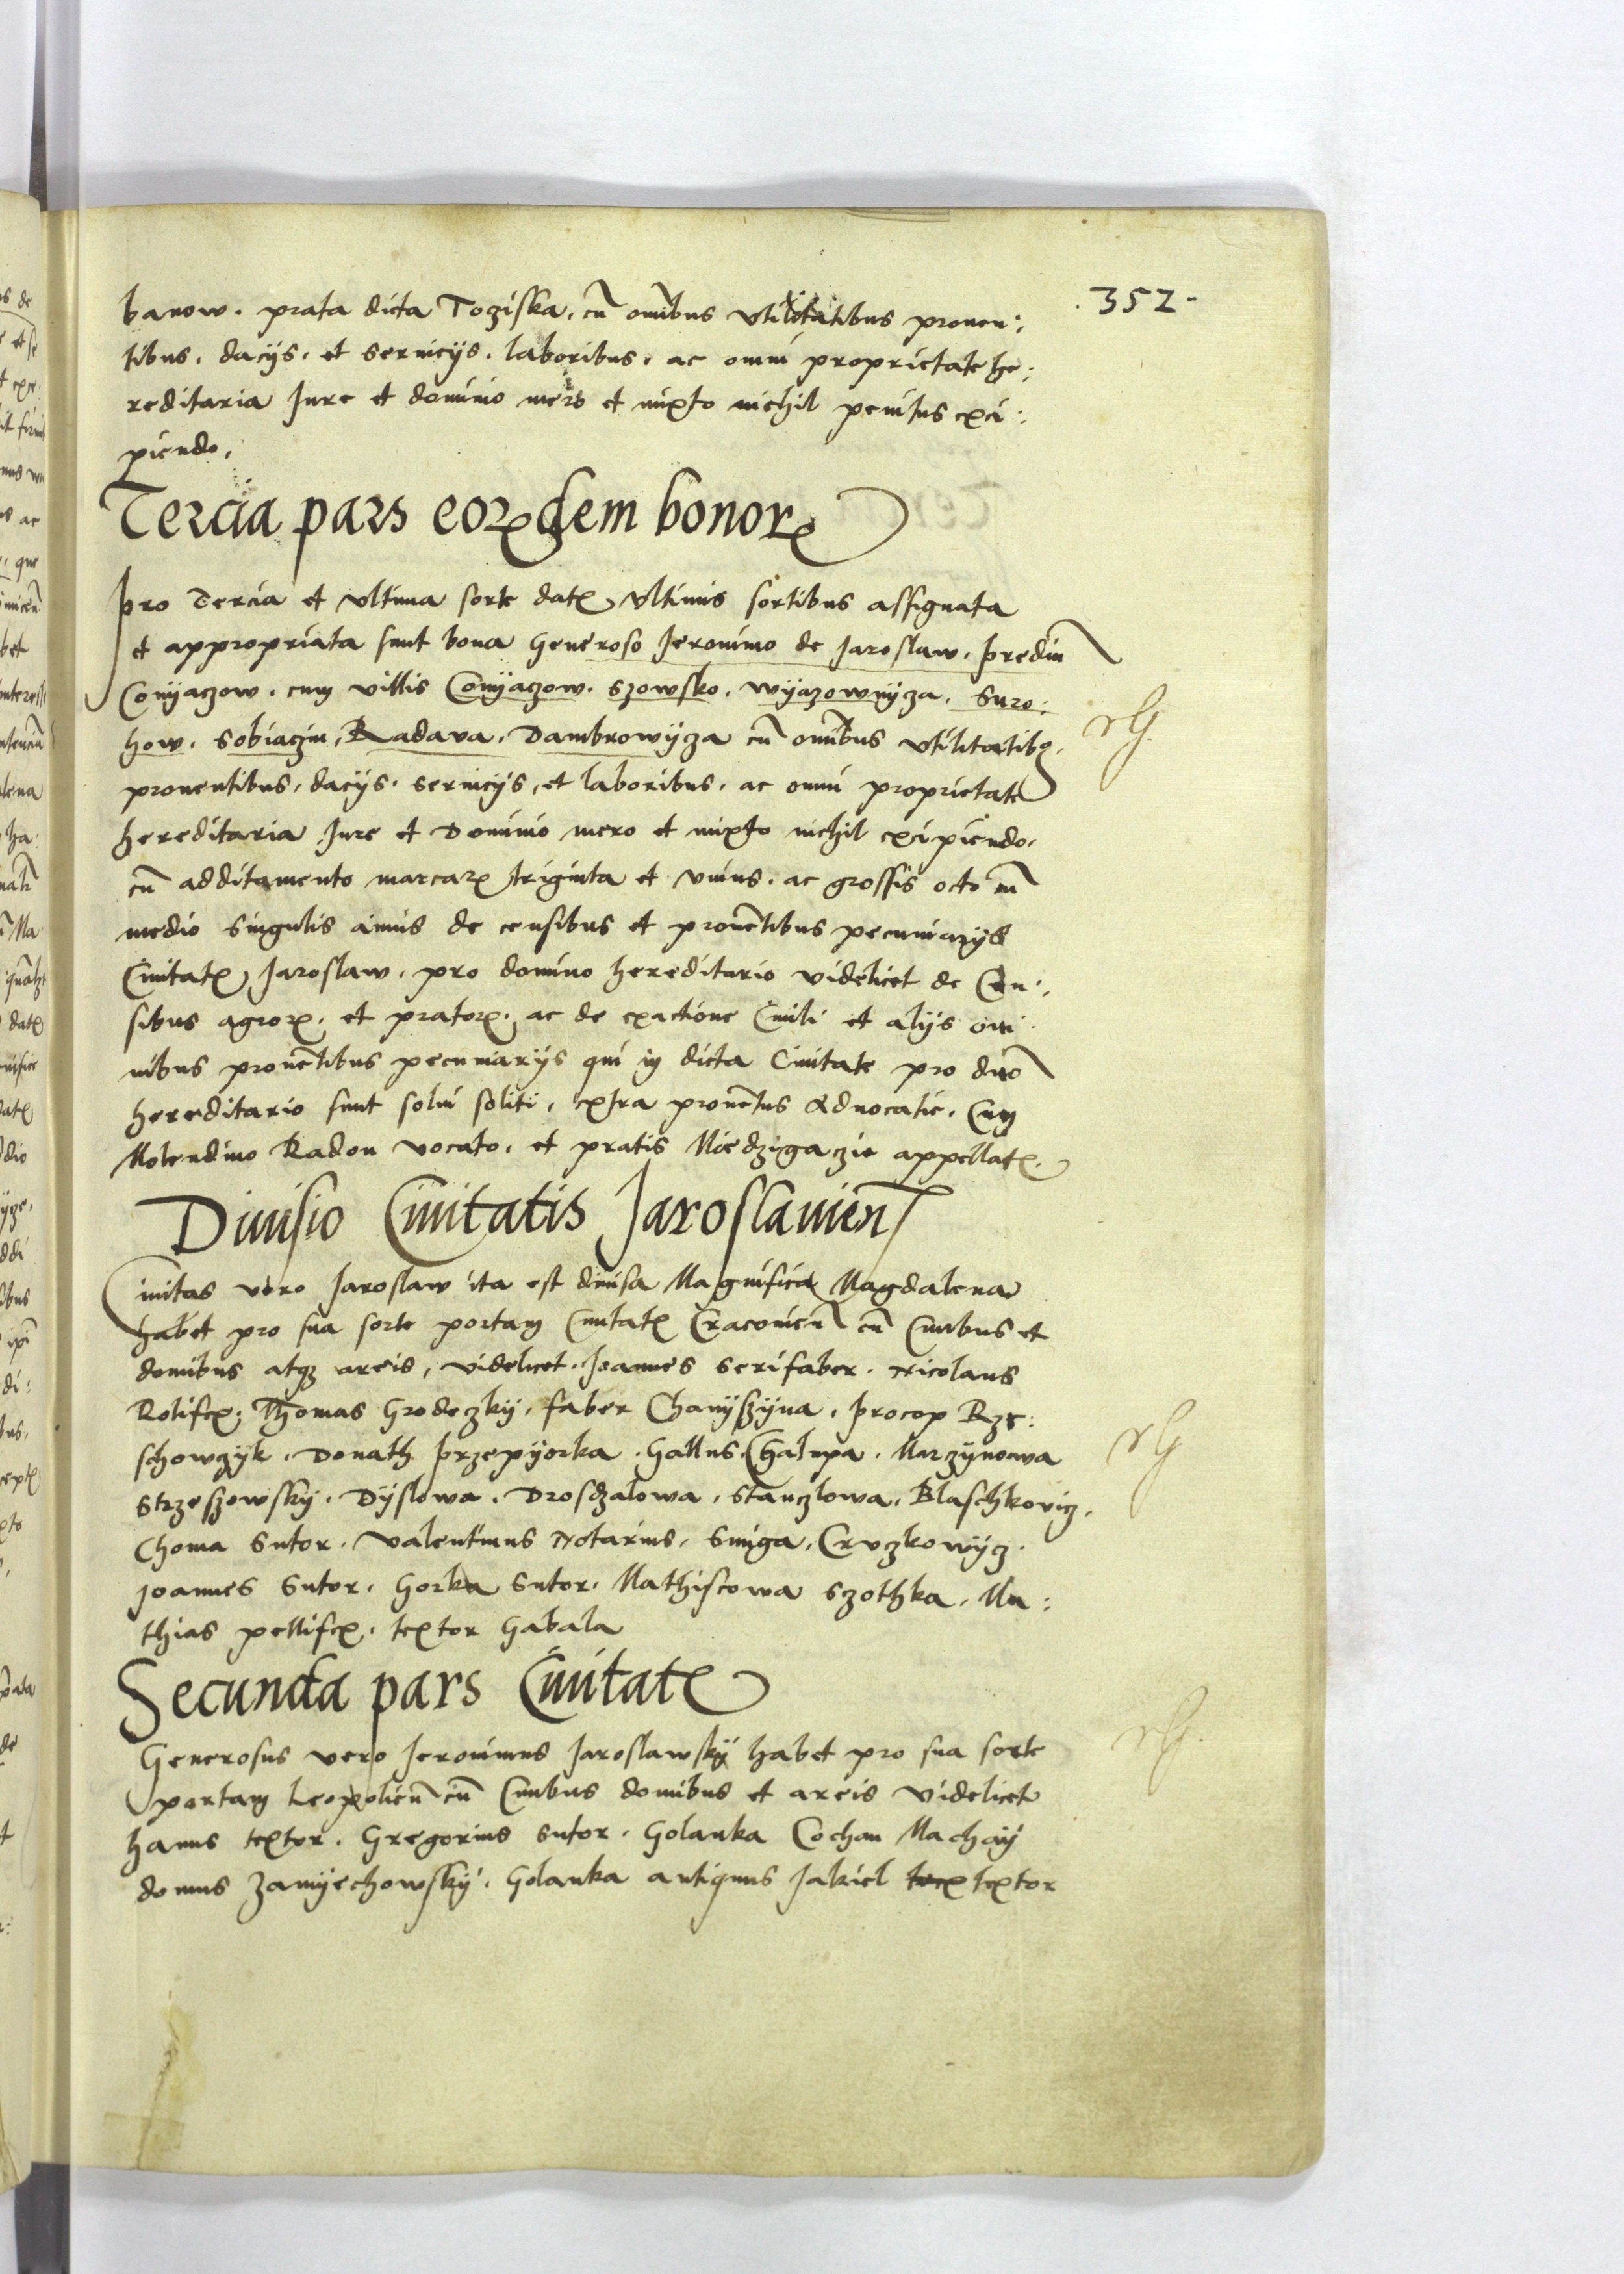 .352.
banow. prata dicta Toziska. cū omībus vtilitatibus prouen:
tibus. dacÿs. et seruicÿs. laboribus. ac omni proprietate he:
reditaria Iure et dominio mero et mixto nichil penitus exci:
piendo.
Tercia pars eorꝝdem bonorꝝ
Pro Tercia et vltima sorte datꝭ vltimis sortibus assignata
et appropriata sunt bona Generoso Jeronimo de Jaroslaw. prediū
Conÿaczow. cum villis Conÿaczow. Szowsko. wÿazownÿza. Suro:
how. Sobiaczin. Radava. Dambrowÿza cū omībus vtilitatibꝰ.
prouentibus. dacÿs. seruicÿs, et laboribus. ac omni proprietate
hereditaria Iure et Dominio mero et mixto nichil excipiendo.
cū additamento marcarꝝ triginta et vnius. ac grossis octo cū
medio singulis annis de censibus et prouētibus pecuniarÿs
Ciuitatꝭ Jaroslaw. pro domino hereditario videlicet de Cen:
sibus agrorꝝ. et pratorꝝ. ac de exactione Ciuili et alÿs om:
nibus prouētibus pecuniarÿs qui in dicta Ciuitate pro dūo
hereditario sunt solui soliti. extra prouētus Aduocatie. Cum
Molendino Radon vocato. et pratis Miedzigazie appellatꝭ.
Diuisio Ciuitatis Jaroslauien̄
Ciuitas vero Jaroslaw ita est diuisa Magnifica Magdalena
habet pro sua sorte portam Ciuitatꝭ Cracouieñ cū Ciuibus et
domibus atqꝫ areis, videlicet. Joannes Serifaber. Nicolaus
Rotifex. Thomas Grodeczkÿ. faber Chanÿszÿna. Procop Rze:
schowczÿk. Donath Przepÿorka. Gallus Chalupa. Marzÿnowa
Strzeszowskÿ. Dÿslowa. Drosdzalowa. Stanczlowa. Blaschkovicz.
Choma Sutor. Valentinus Notarius. Smiga. Cruczkowÿcz.
Joannes Sutor. Gorka Sutor. Mathiscowa Szothka. Ma:
thias pellifex. textor Gabala
Secunda pars Ciuitatꝭ
Generosus vero Jeronimus Jaroslawskÿ habet pro sua sorte
portam Leopolieñ cū Ciuibus domibus et areis Videlicet
hanus textor. Gregorius Sutor. Golanka Cochan Machaÿ
domus Zamÿechowskÿ. Golanka antiquus Jakiel textor